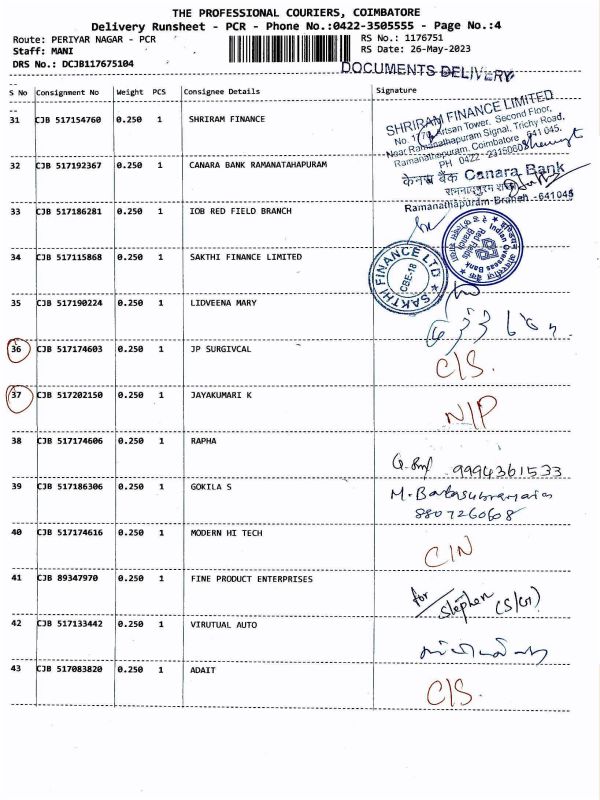 THE PROFESSIONAL COURIERS, COIMBATORE
Delivery Runsheet - PCR - Phone No.:0422-3505555 - Page No.:4
Route: PERIYAR NAGAR - PCR
Staff: MANI
DRS No.: DCJB117675104
RS No.: 1176751
RS Date: 26-May-2023
DOCUMENTS DELIVERY
S No Consignment No Weight PCS Consignee Details Signature
31 CJB 517154760 0.250 1 SHRIRAM FINANCE
SHRIRAM FINANCE LIMITED
Artsan Tower, Second Floor,
Near Ramanathapuram Signal, Trichy Road,
Ramanathapuram, Coimbatore 641 045.
PH 0422-
32 CJB 517192367 0.250 1 CANARA BANK RAMANATAHAPURAM
केनरा बैंक Canara Bank
Ramanathapuram-Branch -641045
33 CJB 517186281 0.250 1 IOB RED FIELD BRANCH
Indian Overseas Bank
Red Fields Branch
34 CJB 517115868 0.250 1 SAKTHI FINANCE LIMITED
SAKTHI FINANCE LTD
CBE-18
35 CJB 517190224 0.250 1 LIDVEENA MARY
36 CJB 517174603 0.250 1 JP SURGIVCAL
C/S.
37 CJB 517202150 0.250 1 JAYAKUMARI K
N/P
38 CJB 517174606 0.250 1 RAPHA
9994361533
39 CJB 517186306 0.250 1 GOKILA S
M. Balasubramaian
8807260608
40 CJB 517174616 0.250 1 MODERN HI TECH
C/N
41 CJB 89347970 0.250 1 FINE PRODUCT ENTERPRISES
for Stephen (S/G)
42 CJB 517133442 0.250 1 VIRUTUAL AUTO
43 CJB 517083820 0.250 1 ADAIT
C/S.